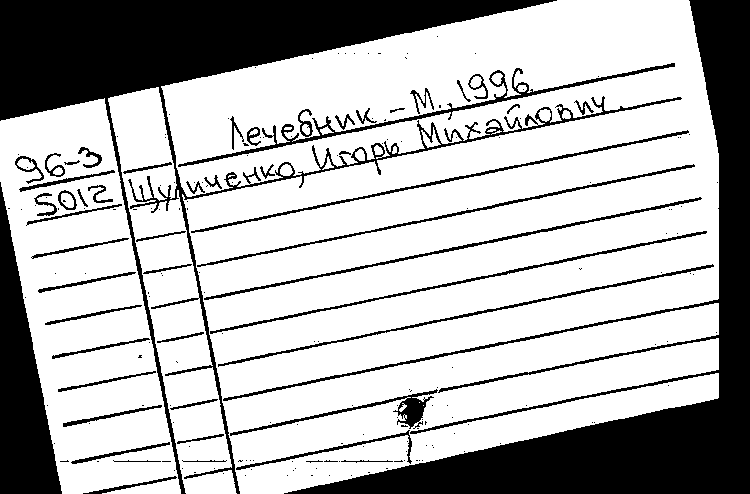 Лечебник. - М., 1996
96-3
5012 Щуличенко, Игорь Михайлович.